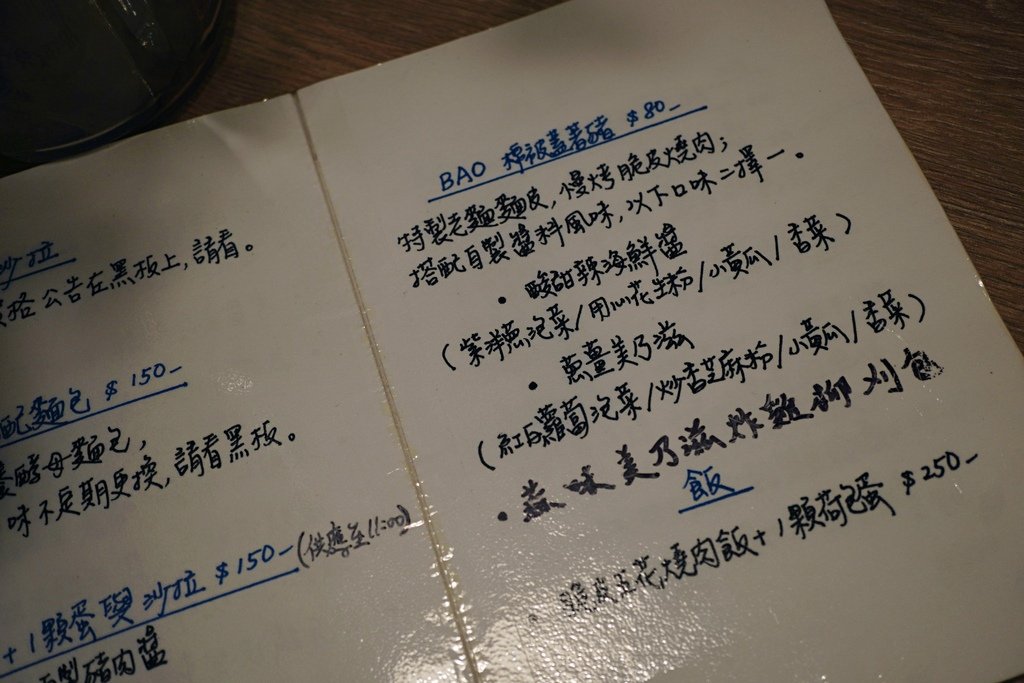 沙拉
格公告在黑板上,請看。
配麵包 $150-
養酵母麵包,
味不定期更換,請看黑板。
+1顆蛋與沙拉 $150-(供應至11:00)
製豬肉醬
BAO 棉被蓋著豬 $80-
特製老麵麵皮,慢烤脆皮燒肉;
搭配自製醬料風味,以下口味二擇一.
• 酸甜辣海鮮醬
(紫洋蔥泡菜/用心花生粉/小黃瓜/香菜)
• 蔥薑美乃滋
(紅白蘿蔔泡菜/炒香芝麻粉/小黃瓜/香菜)
• 蒜味美乃滋炸雞柳刈包
飯
• 脆皮五花燒肉飯+1顆荷包蛋 $250-